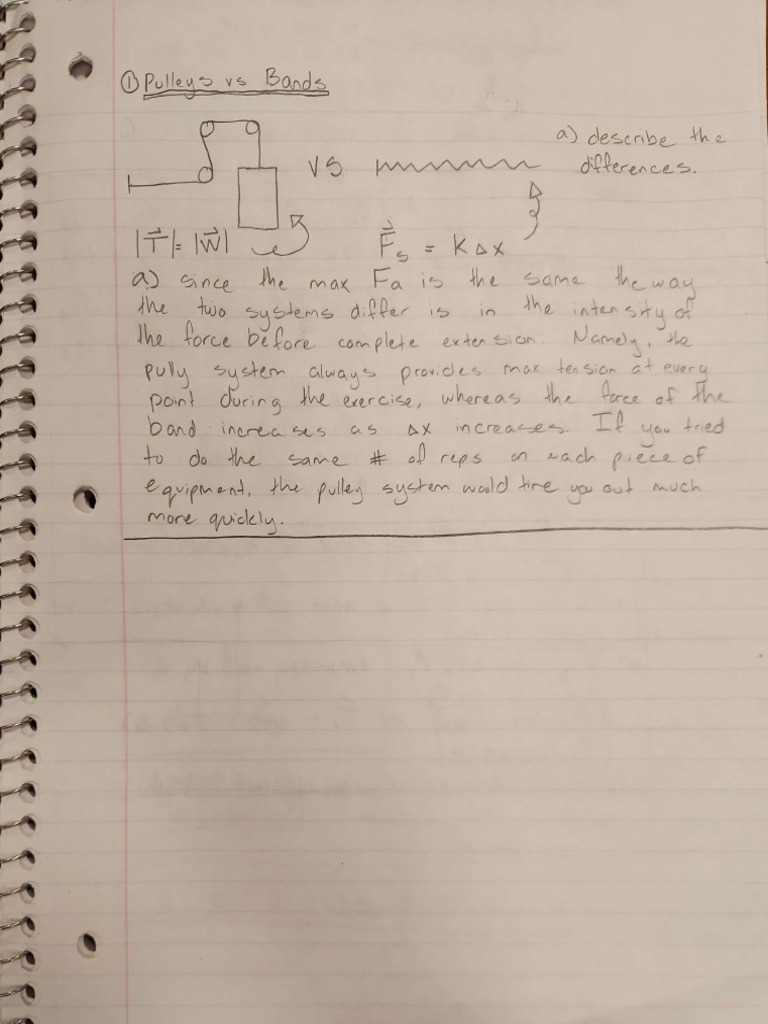 ① Pulleys vs Bands
VS
a) describe the
differences.
|T⃗| = |W⃗|
F⃗s = K Δx
a) since the max Fa is the same the way
the two systems differ is in the intensity of
the force before complete extension. Namely, the
pully system always provides max tension at every
point during the exercise, whereas the force of the
band increases as Δx increases. If you tried
to do the same # of reps on each piece of
equipment, the pulley system would tire you out much
more quickly.